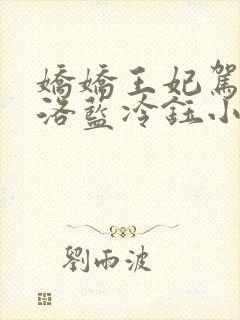 嬌嬌王妃駕
洛藍冷鈺小
劉雨波